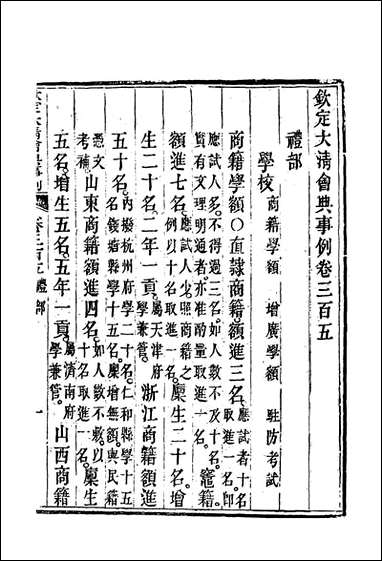 欽定大清會典事例卷三百五
禮部
學校 商籍學額 增廣學額 駐防考試
商籍學額○直隸商籍額進三名。應試者十名取進一名。卽
應試人多。不得過三名。如人數不及十名。竈籍
實有文理明通者。亦准酌量取進一名。
額進七名。應試人少。照商籍之例。以十名取進一名。廩生二十名。增
生二十名。二年一貢。屬天津府學兼管。浙江商籍額進
五十名。內撥杭州府學二十名。仁和縣學十五名。錢塘縣學十五名。廩增無額。與民籍
憑文考補。山東商籍額進四名。如人數不敷。以十名取進一名。廩生
五名。增生五名。五年一貢。屬濟南府學兼管。山西商籍
卷三百五 禮部
一